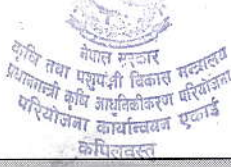 नेपाल सरकार
कृषि तथा पशुपंक्षी विकास मन्त्रालय
प्रधानमन्त्री कृषि आधुनिकीकरण परियोजना
परियोजना कार्यान्वयन एकाई
कपिलवस्तु